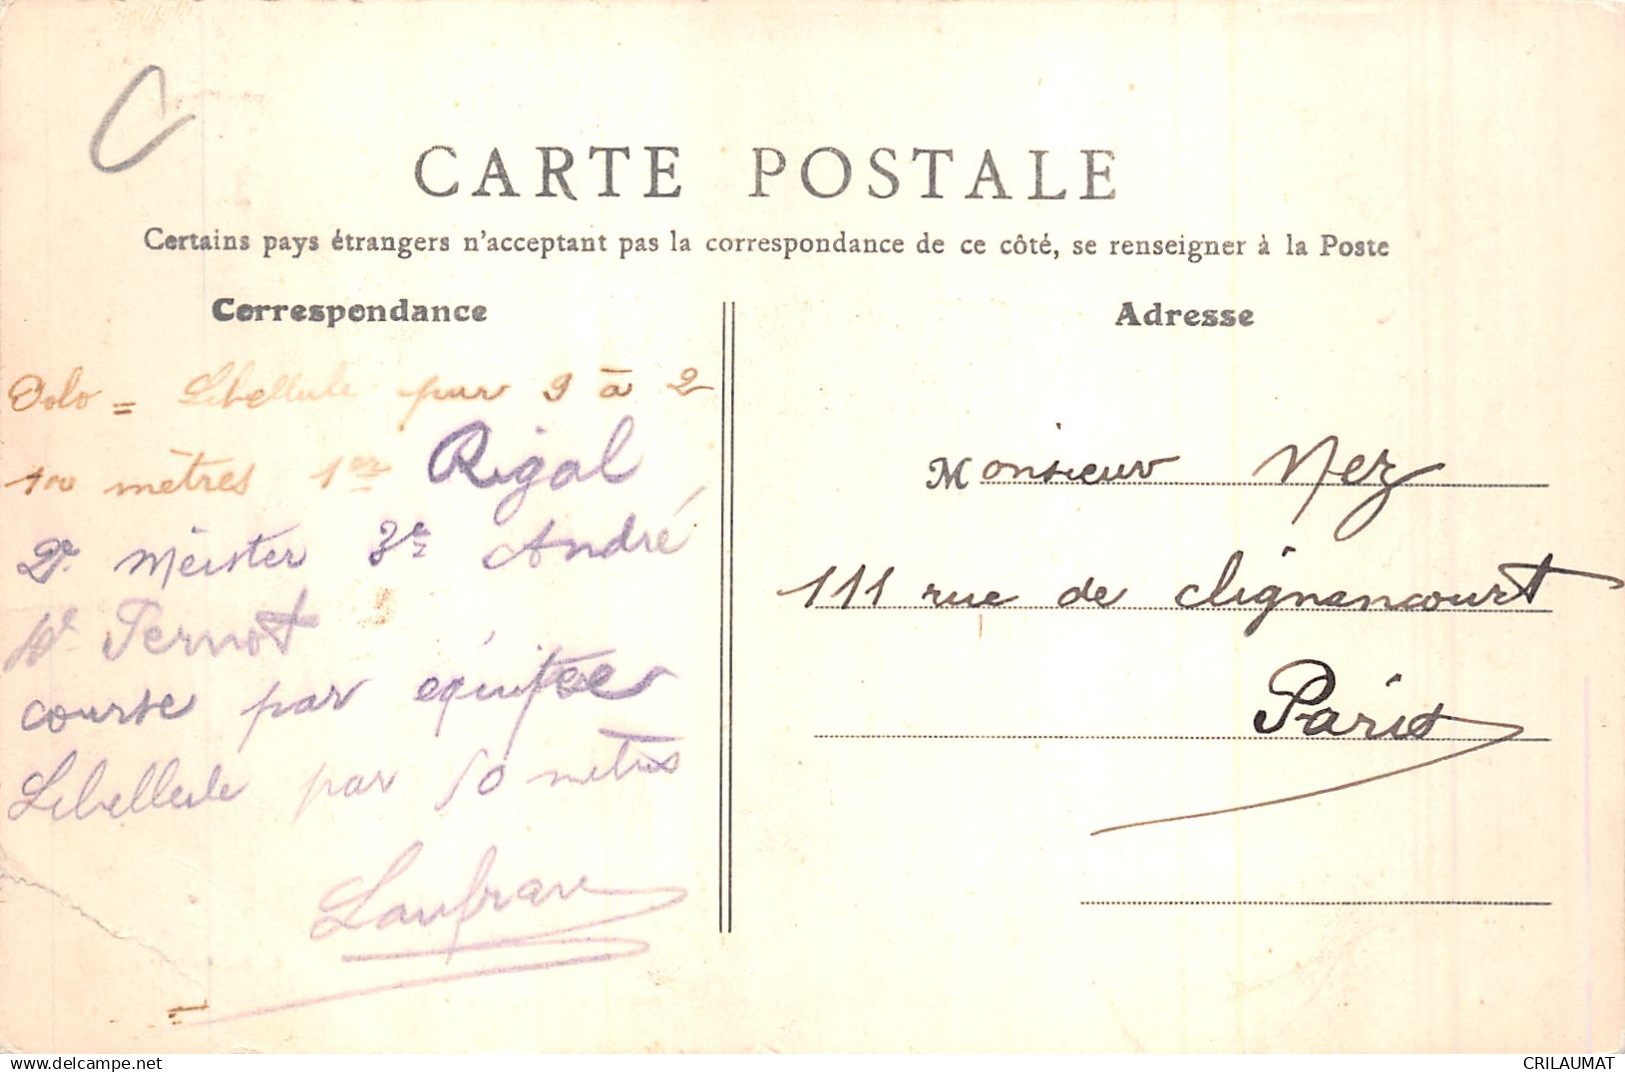 C
CARTE POSTALE
Certains pays étrangers n'acceptant pas la correspondance de ce côté, se renseigner à la Poste
Correspondance
Polo = Libellule par 9 à 2
100 mètres 1er Rigal
2e Meister 3e André
4e Pernot
course par équipee
Libellule par 50 mètres
Adresse
Monsieur Nez
111 rue de Clignancourt
Paris
www.delcampe.net
CRILAUMAT